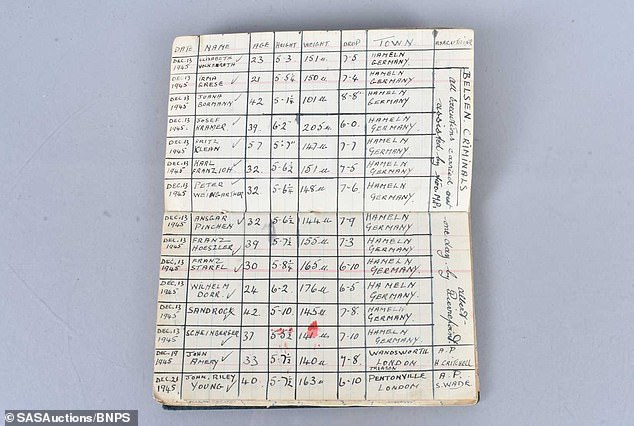 DATE NAME AGE HEIGHT WEIGHT DROP TOWN EXECUTIONER
DEC.13 1945 ELIZABETH VOLKENRATH 23 5-3 151 7-5 HAMELN GERMANY.
DEC.13 1945 IRMA GRESE 21 5-5¼ 150 7-4 HAMELN GERMANY.
DEC.13 1945 JOANA BORMANN 42 101 8-8 HAMELN GERMANY
DEC.13 1945 JOSEF KRAMER 39. 6-2 205 6-0. HAMELN GERMANY.
DEC.13 1945 FRITZ KLEAN 57. 5-7 147 7-7 HAMELN GERMANY.
DEC.13 1945 KARL FRANZIOH 32. 5-6½ 151 7-5 HAMELN GERMANY.
DEC.13 1945 PETER WEINGARTNER 32 148 7-6. HAMELN GERMANY.
DEC.13 1945 ANSGAR PINCHEN 32 5-6½ 144 7-9 HAMELN GERMANY.
DEC.13 1945 FRANZ HOESZLER 39 5-7½ 155 7-3 HAMELN GERMANY.
DEC.13 1945 FRANZ STARFL 30 165 6-10 HAMELN GERMANY.
DEC.13 1945 WILHELM DORR. 24 6-2 176 6-5 HAMELN GERMANY.
DEC.13 1945 SANDROCK 42. 5-10. 145 7-8. HAMELN GERMANY.
DEC.13 1945 SCHEINBERGER 37 7-10 HAMELN GERMANY.
DEC-19 1945 JOHN AMERY 33 5-7½ 140 7-8. WANDSWORTH LONDON TREASON A.P H.CRITCHELL
DEC.21 1945 JOHN. RILEY YOUNG 40. 5-7½ 163 6-10 PENTONVILLE LONDON A.P. S.WADE.
BELSEN CRIMINALS
all executions carried out one day by Pierrepoint
assisted by
© SASAuctions/BNPS